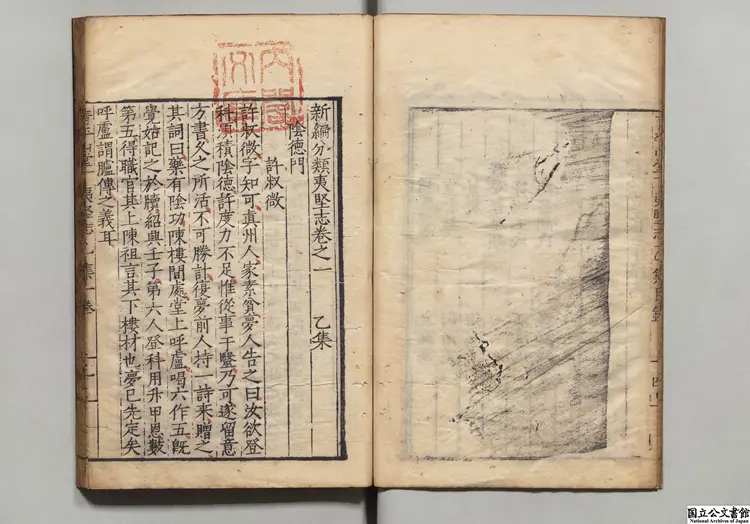 新編分類夷堅志卷之一 乙集
陰德門
許叔微
許叔微字知可真州人家素貧夢人告之曰汝欲登
科須積陰德許度力不足惟從事于醫乃可遂留意
方書久之所活不可勝計復夢前人持一詩來贈之
其詞曰藥有陰功陳樓間處堂上呼盧唱六作五既
覺始記之於牘紹興壬子第六人登科用升甲恩數
第五得職官其上陳祖言其下樓材也夢已先定矣
呼盧謂臚傳之義耳
夷堅志乙集一卷
內閣文庫
国立公文書館
National Archives of Japan